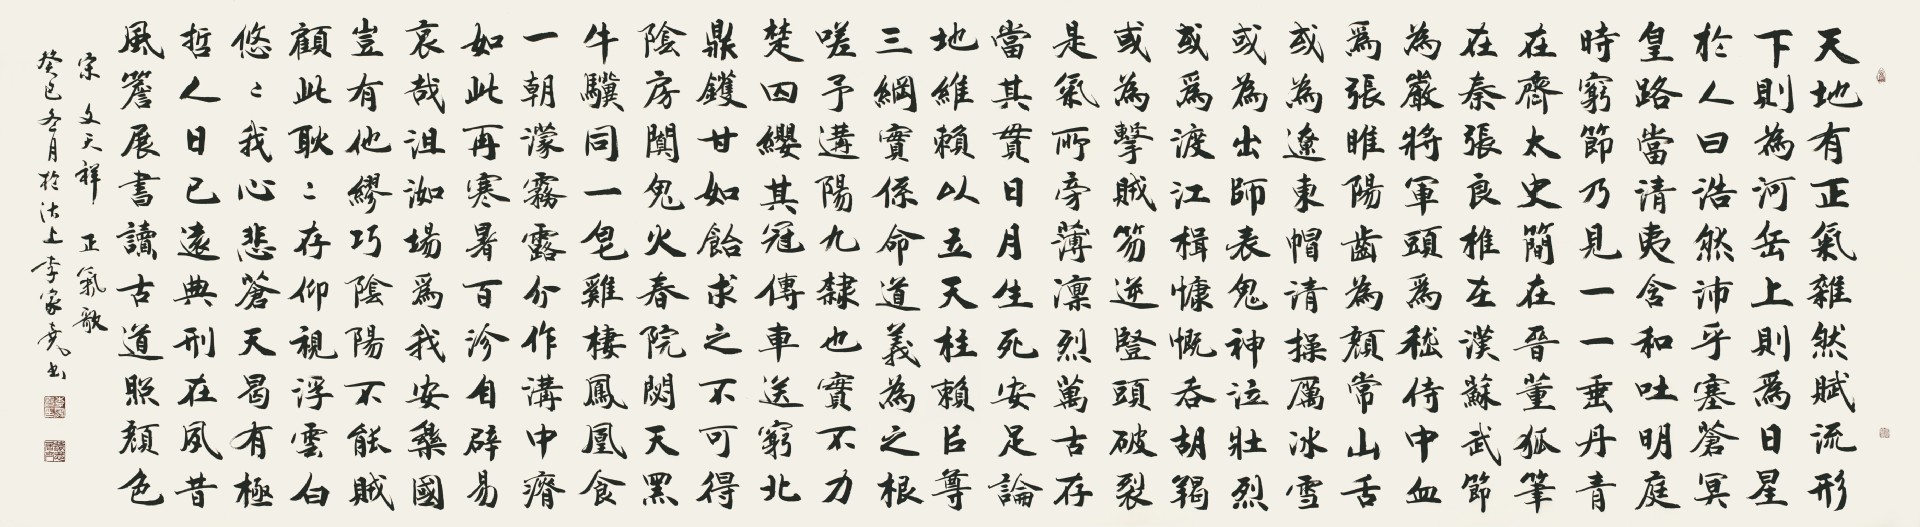 天地有正氣雜然賦流形
下則為河岳上則爲日星
於人曰浩然沛乎塞蒼冥
皇路當清夷含和吐明庭
時窮節乃見一一垂丹青
在齊太史簡在晉董狐筆
在秦張良椎在漢蘇武節
為嚴將軍頭爲嵇侍中血
爲張睢陽齒為顏常山舌
或為遼東帽清操厲冰雪
或為出師表鬼神泣壯烈
或爲渡江楫慷慨吞胡羯
或為擊賊笏逆豎頭破裂
是氣所旁薄凜烈萬古存
當其貫日月生死安足論
地維賴以立天柱賴以尊
三綱實係命道義為之根
嗟予遘陽九隸也實不力
楚囚纓其冠傳車送窮北
鼎鑊甘如飴求之不可得
陰房闃鬼火春院閟天黑
牛驥同一皂雞棲鳳凰食
一朝濛霧露分作溝中瘠
如此再寒暑百沴自辟易
哀哉沮洳場爲我安樂國
豈有他繆巧陰陽不能賊
顧此耿〻存仰視浮雲白
悠〻我心悲蒼天曷有極
哲人日已遠典刑在夙昔
風簷展書讀古道照顏色
宋 文天祥 正氣歌
癸巳冬月於沽上李家尧书